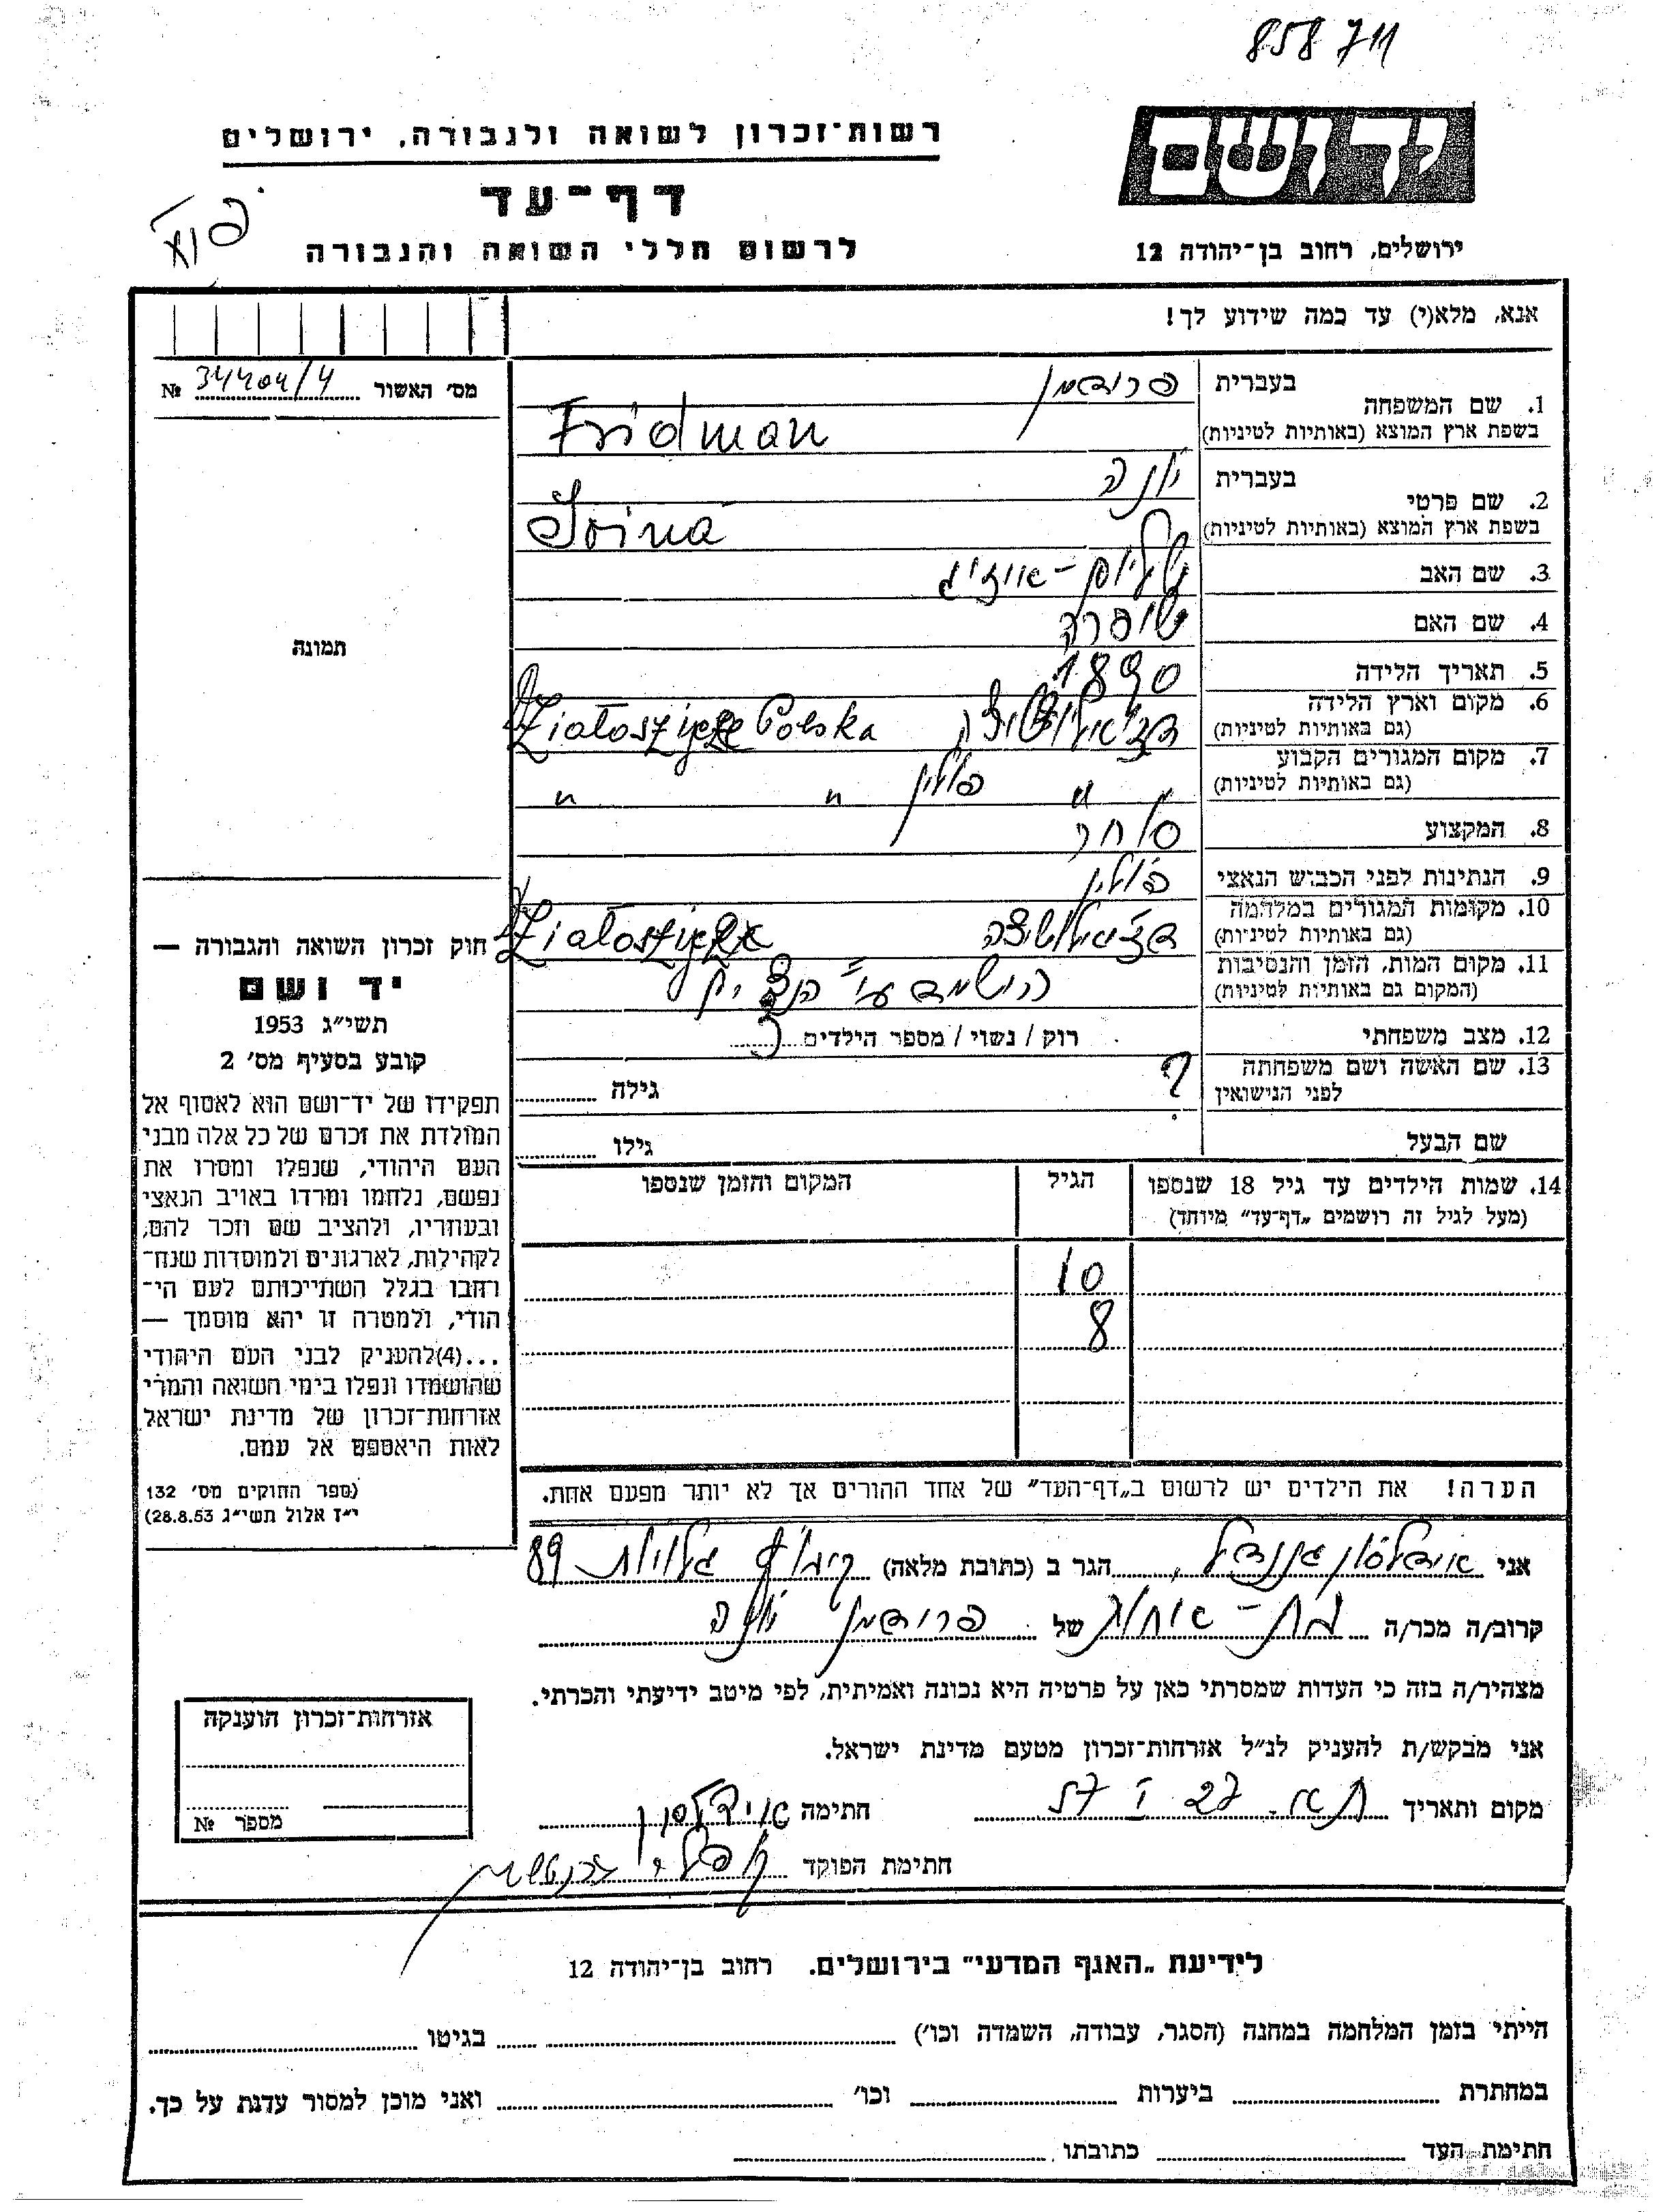 858711
יד ושם
רשות־זכרון לשואה ולגבורה, ירושלים
דף־עד
לרשום חללי השואה והגבורה
ירושלים, רחוב בן־יהודה 12
אנא, מלא(י) עד כמה שידוע לך!
מס' האשור № 34404/4
תמונה
1. שם המשפחה
בעברית פרידמן
בשפת ארץ המוצא (באותיות לטיניות) Fridman
2. שם פרטי
בעברית יונה
בשפת ארץ המוצא (באותיות לטיניות) Joina
3. שם האב
4. שם האם שיפרה
5. תאריך הלידה 1890
6. מקום וארץ הלידה
(גם באותיות לטיניות) Polska
7. מקום המגורים הקבוע
(גם באותיות לטיניות) " פולין " "
8. המקצוע סוחר
9. הנתינות לפני הכבוש הנאצי פולין
10. מקומות המגורים במלחמה
(גם באותיות לטיניות)
11. מקום המות, הזמן והנסיבות
(המקום גם באותיות לטיניות) הושמד ע"י הנצים
12. מצב משפחתי רוק / נשוי / מספר הילדים
13. שם האשה ושם משפחתה
לפני הנישואין ? גילה
שם הבעל גילו
14. שמות הילדים עד גיל 18 שנספו
(מעל לגיל זה רושמים „דף־עד" מיוחד)
הגיל
המקום והזמן שנספו
10
8
הערה! את הילדים יש לרשום ב„דף־העד" של אחד ההורים אך לא יותר מפעם אחת.
חוק זכרון השואה והגבורה —
יד ושם
תשי"ג 1953
קובע בסעיף מס' 2
תפקידו של יד־ושם הוא לאסוף אל
המולדת את זכרם של כל אלה מבני
העם היהודי, שנפלו ומסרו את
נפשם, נלחמו ומרדו באויב הנאצי
ובעוזריו, ולהציב שם וזכר להם,
לקהילות, לארגונים ולמוסדות שנח־
רחבו בגלל השתייכותם לעם הי־
הודי, ולמטרה זו יהא מוסמך —
...(4)להעניק לבני העם היהודי
שהושמדו ונפלו בימי השואה והמרי
אזרחות־זכרון של מדינת ישראל
לאות היאספם אל עמם.
(ספר החוקים מס' 132
י"ז אלול תשי"ג 28.8.53)
אני הגר ב (כתובת מלאה) קיבוץ גלויות 89
קרוב/ה מכר/ה בת־אחות של פרידמן יונה
מצהיר/ה בזה כי העדות שמסרתי כאן על פרטיה היא נכונה ואמיתית, לפי מיטב ידיעתי והכרתי.
אני מבקש/ת להעניק לנ"ל אזרחות־זכרון מטעם מדינת ישראל.
מקום ותאריך חתימה
חתימת הפוקד
אזרחות־זכרון הוענקה
מספר №
לידיעת „האגף המדעי" בירושלים. רחוב בן־יהודה 12
הייתי בזמן המלחמה במחנה (הסגר, עבודה, השמדה וכו') בגיטו
במחתרת ביערות וכו' ואני מוכן למסור עדות על כך.
חתימת העד כתובתו